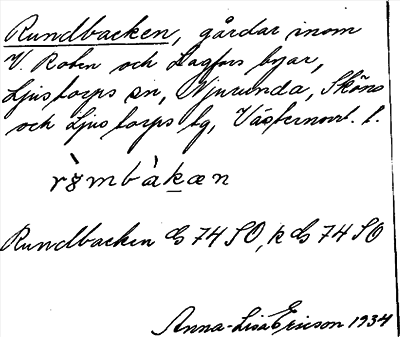 Rundbacken, gårdar inom
V. Roten och Lagfors byar,
Ljustorps sn, Njurunda, Sköns
och Ljustorps tg, Västernorrl. l.
Rundbacken G 74 SO, k G 74 SO
Anna-Lisa Ericson 1934